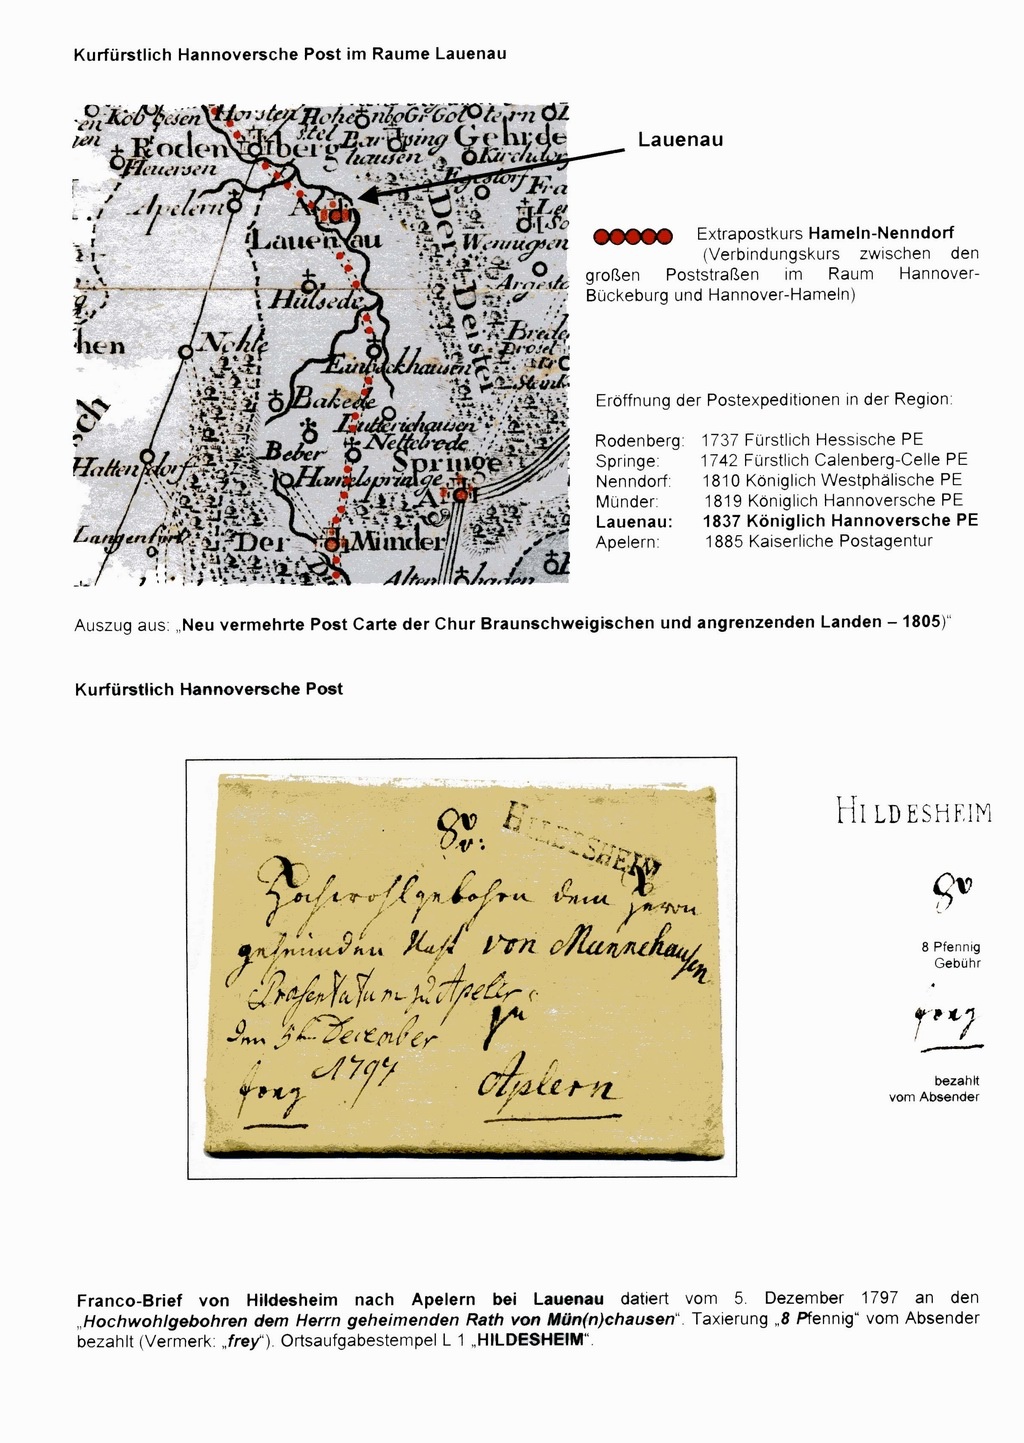 Kurfürstlich Hannoversche Post im Raume Lauenau
Horsten
Roden berg
Heuersen
Gehrde
Kirchdorf
Egestorf
Apelern
Lauenau
Wennigsen
Der Deister
Hülsede
Nohle
Einbeckhausen
Bakede
Lutteriehausen
Beber
Nettelrode
Hattendorf
Hamelspringe
Springe
Amt
Der
Münder
Lauenau
Extrapostkurs Hameln-Nenndorf
(Verbindungskurs zwischen den
großen Poststraßen im Raum Hannover-
Bückeburg und Hannover-Hameln)
Eröffnung der Postexpeditionen in der Region:
Rodenberg: 1737 Fürstlich Hessische PE
Springe: 1742 Fürstlich Calenberg-Celle PE
Nenndorf: 1810 Königlich Westphälische PE
Münder: 1819 Königlich Hannoversche PE
Lauenau: 1837 Königlich Hannoversche PE
Apelern: 1885 Kaiserliche Postagentur
Auszug aus: „Neu vermehrte Post Carte der Chur Braunschweigischen und angrenzenden Landen – 1805)“
Kurfürstlich Hannoversche Post
HILDESHEIM
Hochwohlgebohren dem Herrn
geheimden Rath von Münnchausen
Präsentatum zu Apeler
den 5ten December
1797
zu
frey
Aplern
HILDESHEIM
8 Pfennig
Gebühr
frey
bezahlt
vom Absender
Franco-Brief von Hildesheim nach Apelern bei Lauenau datiert vom 5. Dezember 1797 an den
„Hochwohlgebohren dem Herrn geheimenden Rath von Mün(n)chausen“. Taxierung „8 Pfennig“ vom Absender
bezahlt (Vermerk: „frey“). Ortsaufgabestempel L 1 „HILDESHEIM“.